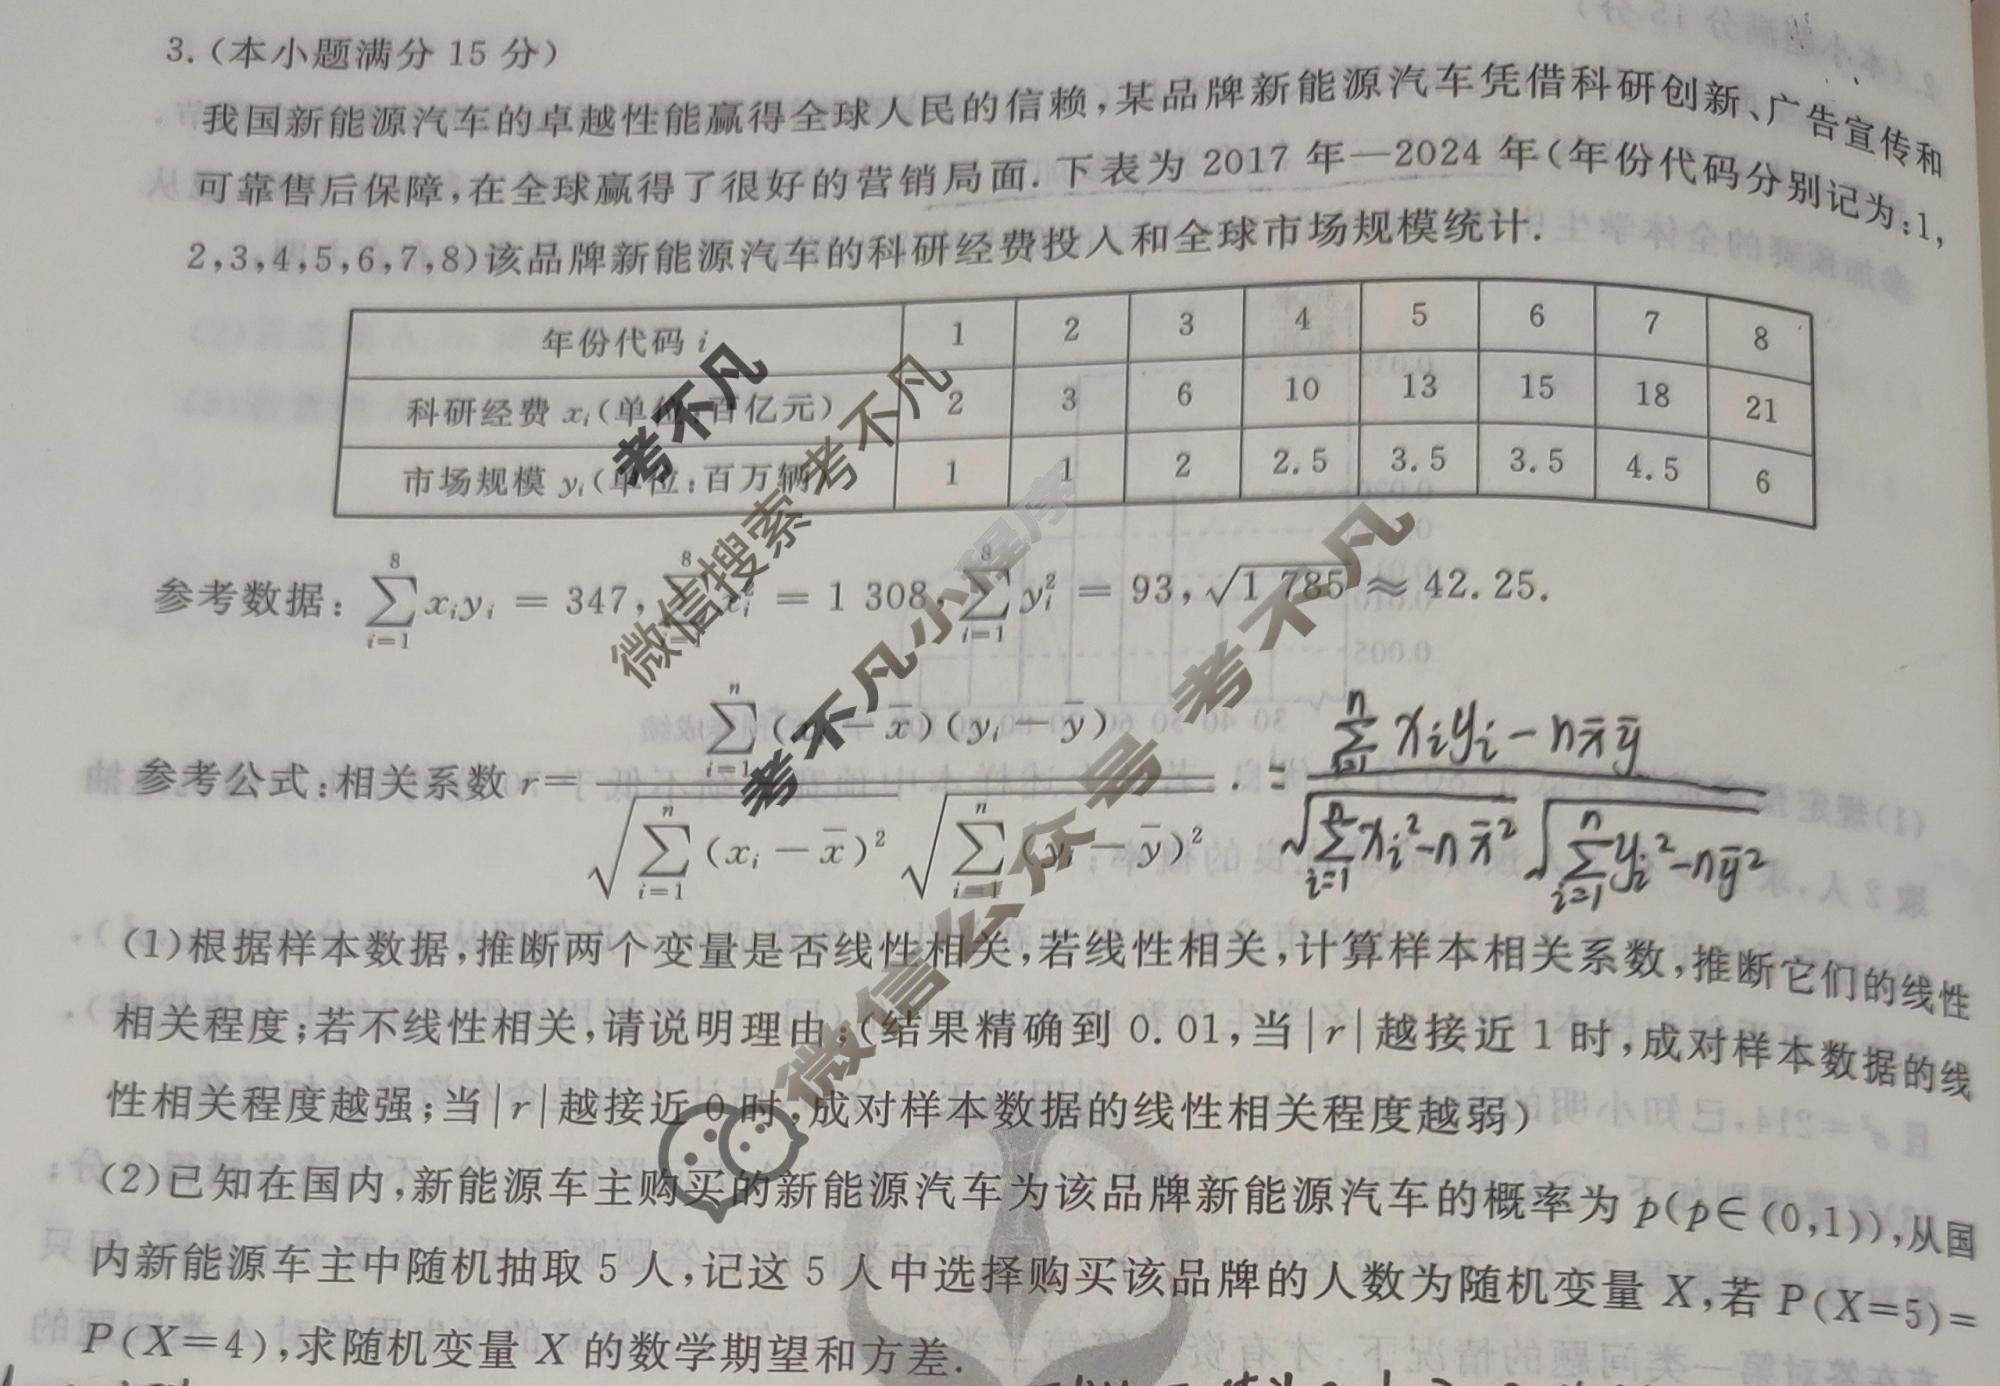 3.(本小题满分 15 分)
我国新能源汽车的卓越性能赢得全球人民的信赖,某品牌新能源汽车凭借科研创新、广告宣传和
可靠售后保障,在全球赢得了很好的营销局面.下表为 2017 年—2024 年(年份代码分别记为:1,
2,3,4,5,6,7,8)该品牌新能源汽车的科研经费投入和全球市场规模统计.
年份代码 i 1 2 3 4 5 6 7 8
科研经费 xᵢ(单位:百亿元) 2 3 6 10 13 15 18 21
市场规模 yᵢ(单位:百万辆) 1 1 2 2.5 3.5 3.5 4.5 6
参考数据: ∑_{i=1}^{8} xᵢyᵢ = 347, ∑_{i=1}^{8} xᵢ² = 1 308, ∑_{i=1}^{8} yᵢ² = 93, √1 785 ≈ 42.25.
参考公式:相关系数 r = ∑_{i=1}^{n} (xᵢ − x̄)(yᵢ − ȳ) / (√(∑_{i=1}^{n} (xᵢ − x̄)²) √(∑_{i=1}^{n} (yᵢ − ȳ)²)) . = (∑_{i=1}^{n} xᵢyᵢ − n x̄ ȳ) / (√(∑_{i=1}^{n} xᵢ² − n x̄²) √(∑_{i=1}^{n} yᵢ² − n ȳ²))
(1)根据样本数据,推断两个变量是否线性相关,若线性相关,计算样本相关系数,推断它们的线性
相关程度;若不线性相关,请说明理由;(结果精确到 0.01,当|r|越接近 1 时,成对样本数据的线
性相关程度越强;当|r|越接近 0 时,成对样本数据的线性相关程度越弱)
(2)已知在国内,新能源车主购买的新能源汽车为该品牌新能源汽车的概率为 p(p∈(0,1)),从国
内新能源车主中随机抽取 5 人,记这 5 人中选择购买该品牌的人数为随机变量 X,若 P(X=5)=
P(X=4),求随机变量 X 的数学期望和方差.
考不凡
微信搜索 考不凡
考不凡小程序
微信公众号 考不凡